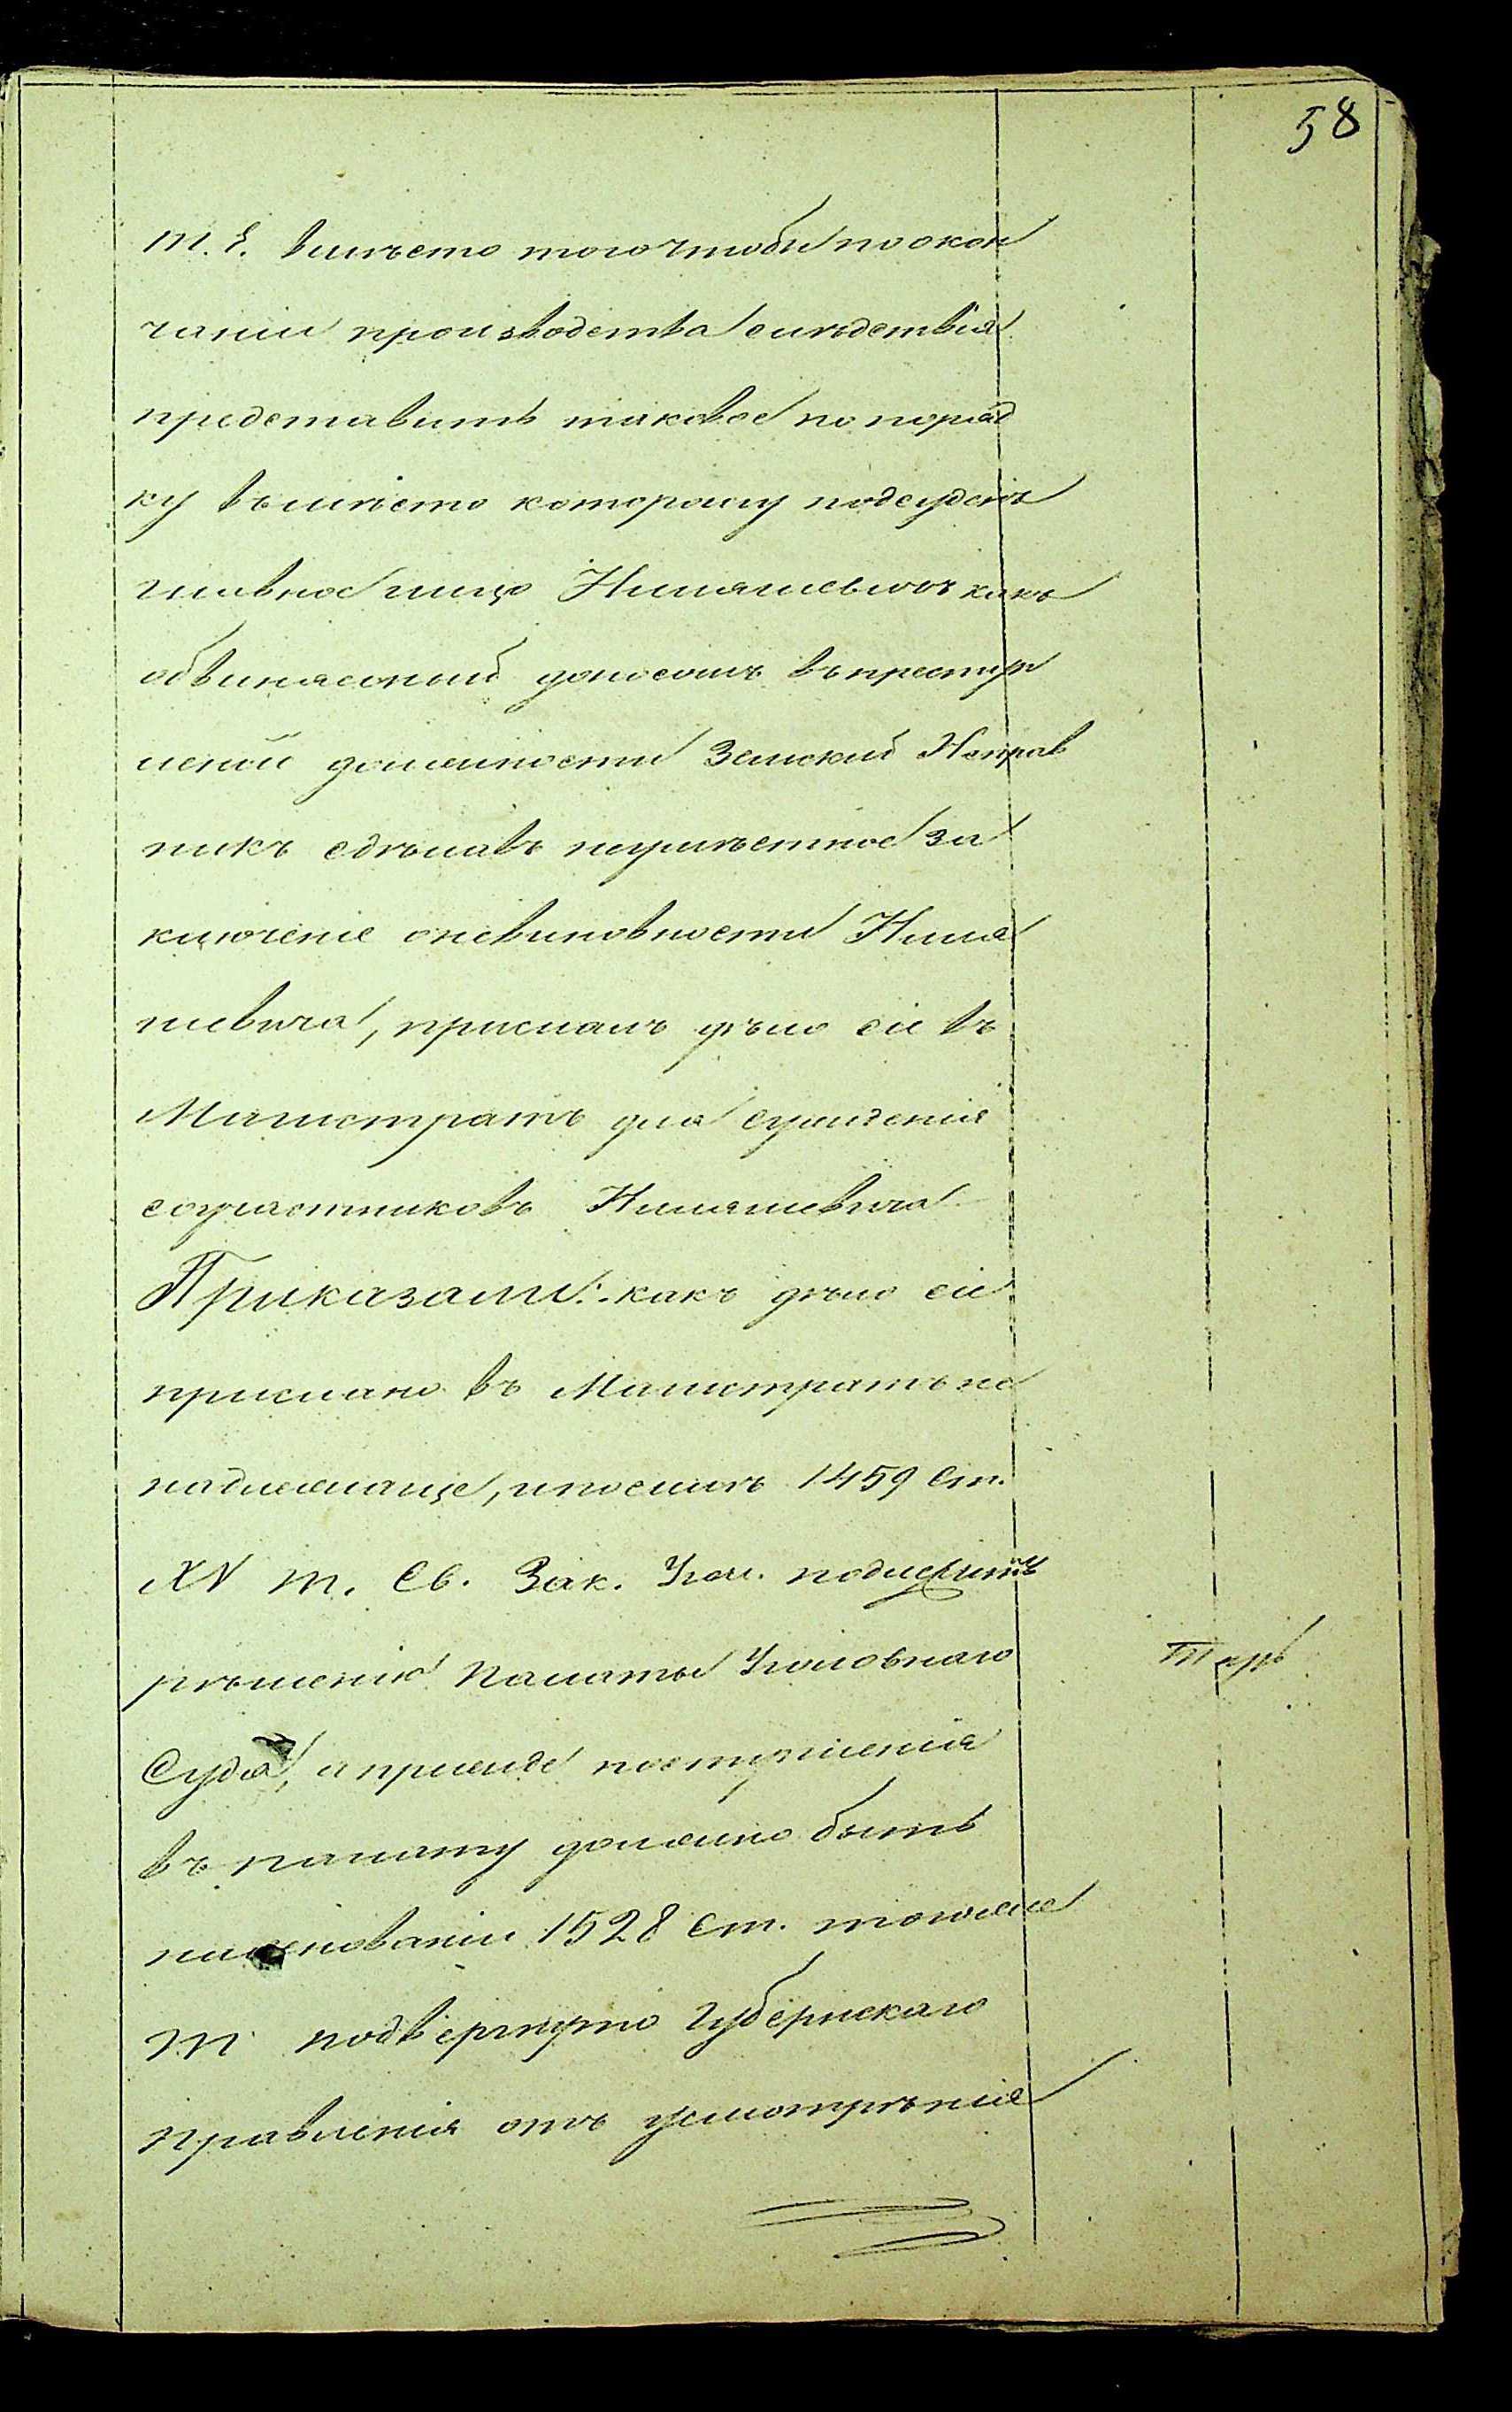 58
т. е. вмѣсто того чтобы по окон
чаніи производства слѣдствія
представить таковое по поряд
ку въ мѣсто которому подсуденъ
главное лицо какъ
обвиняемый доносомъ въ преступ
леніи должности Земскій Исправ
никъ сдѣлавъ неумѣстное за
ключеніе о невиновности Нима
шевича, прислалъ дѣло сіе въ
Магистратъ для сужденія
соучастниковъ Нимашевича
Приказали: какъ дѣло сіе
прислано въ Магистратъ не
надлежаще, и по силѣ 1459 ст.
XV т. Св. Зак. Угол. подлежитъ
рѣшенію Палаты Уголовнаго
Суда, а прежде поступленія
въ палату должно быть
на основаніи 1528 ст. того же
т. подвергнуто Губернскаго
Правленія отъ усмотрѣнія